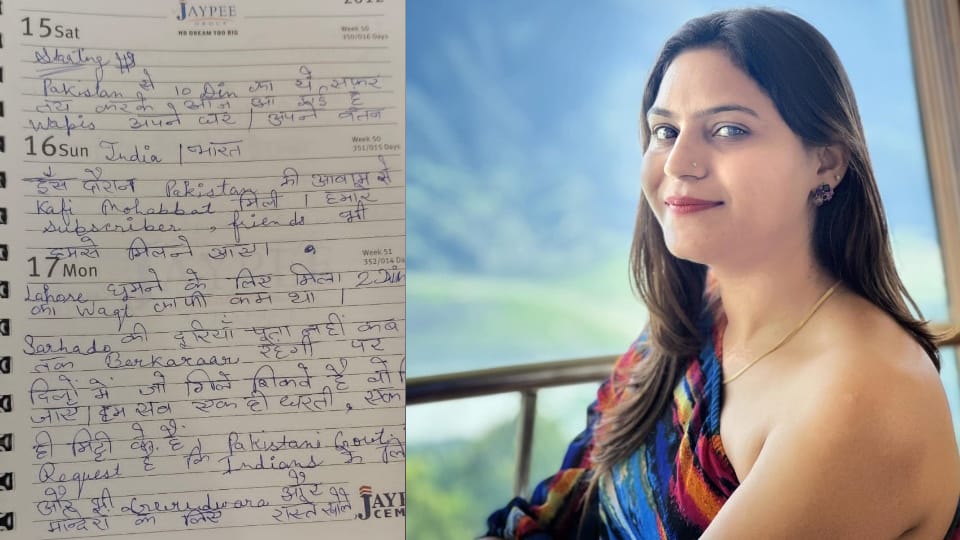 JAYPEE
GROUP
NO DREAM TOO BIG
2012
15 Sat
Week 50
350/016 Days
Pakistan से 10 Din का ये सफर
तय करके आज आ गई है
Wapis अपने घर | अपने वतन
16 Sun
Week 50
351/015 Days
India | भारत
इस दौरान Pakistan की आवाम से
Kafi Mohabbat मिली | हमारे
subscriber, friends भी
हमसे मिलने आए |
17 Mon
Week 51
352/014 Da
Lahore घूमने के लिए मिला 2 Din
का Waqt काफी कम था |
Sarhado की दूरियाँ पता नहीं कब
तक Barkaraar रहेगी पर
दिलों में जो गिले शिकवे है वो
जाए | हम सब एक ही धरती, एक
ही मिट्टी के है | Pakistani Govt
Request है कि Indians के
और भी Gurudwara और
मन्दिरों के लिए रास्ते खोले
JAYPEE
CEM